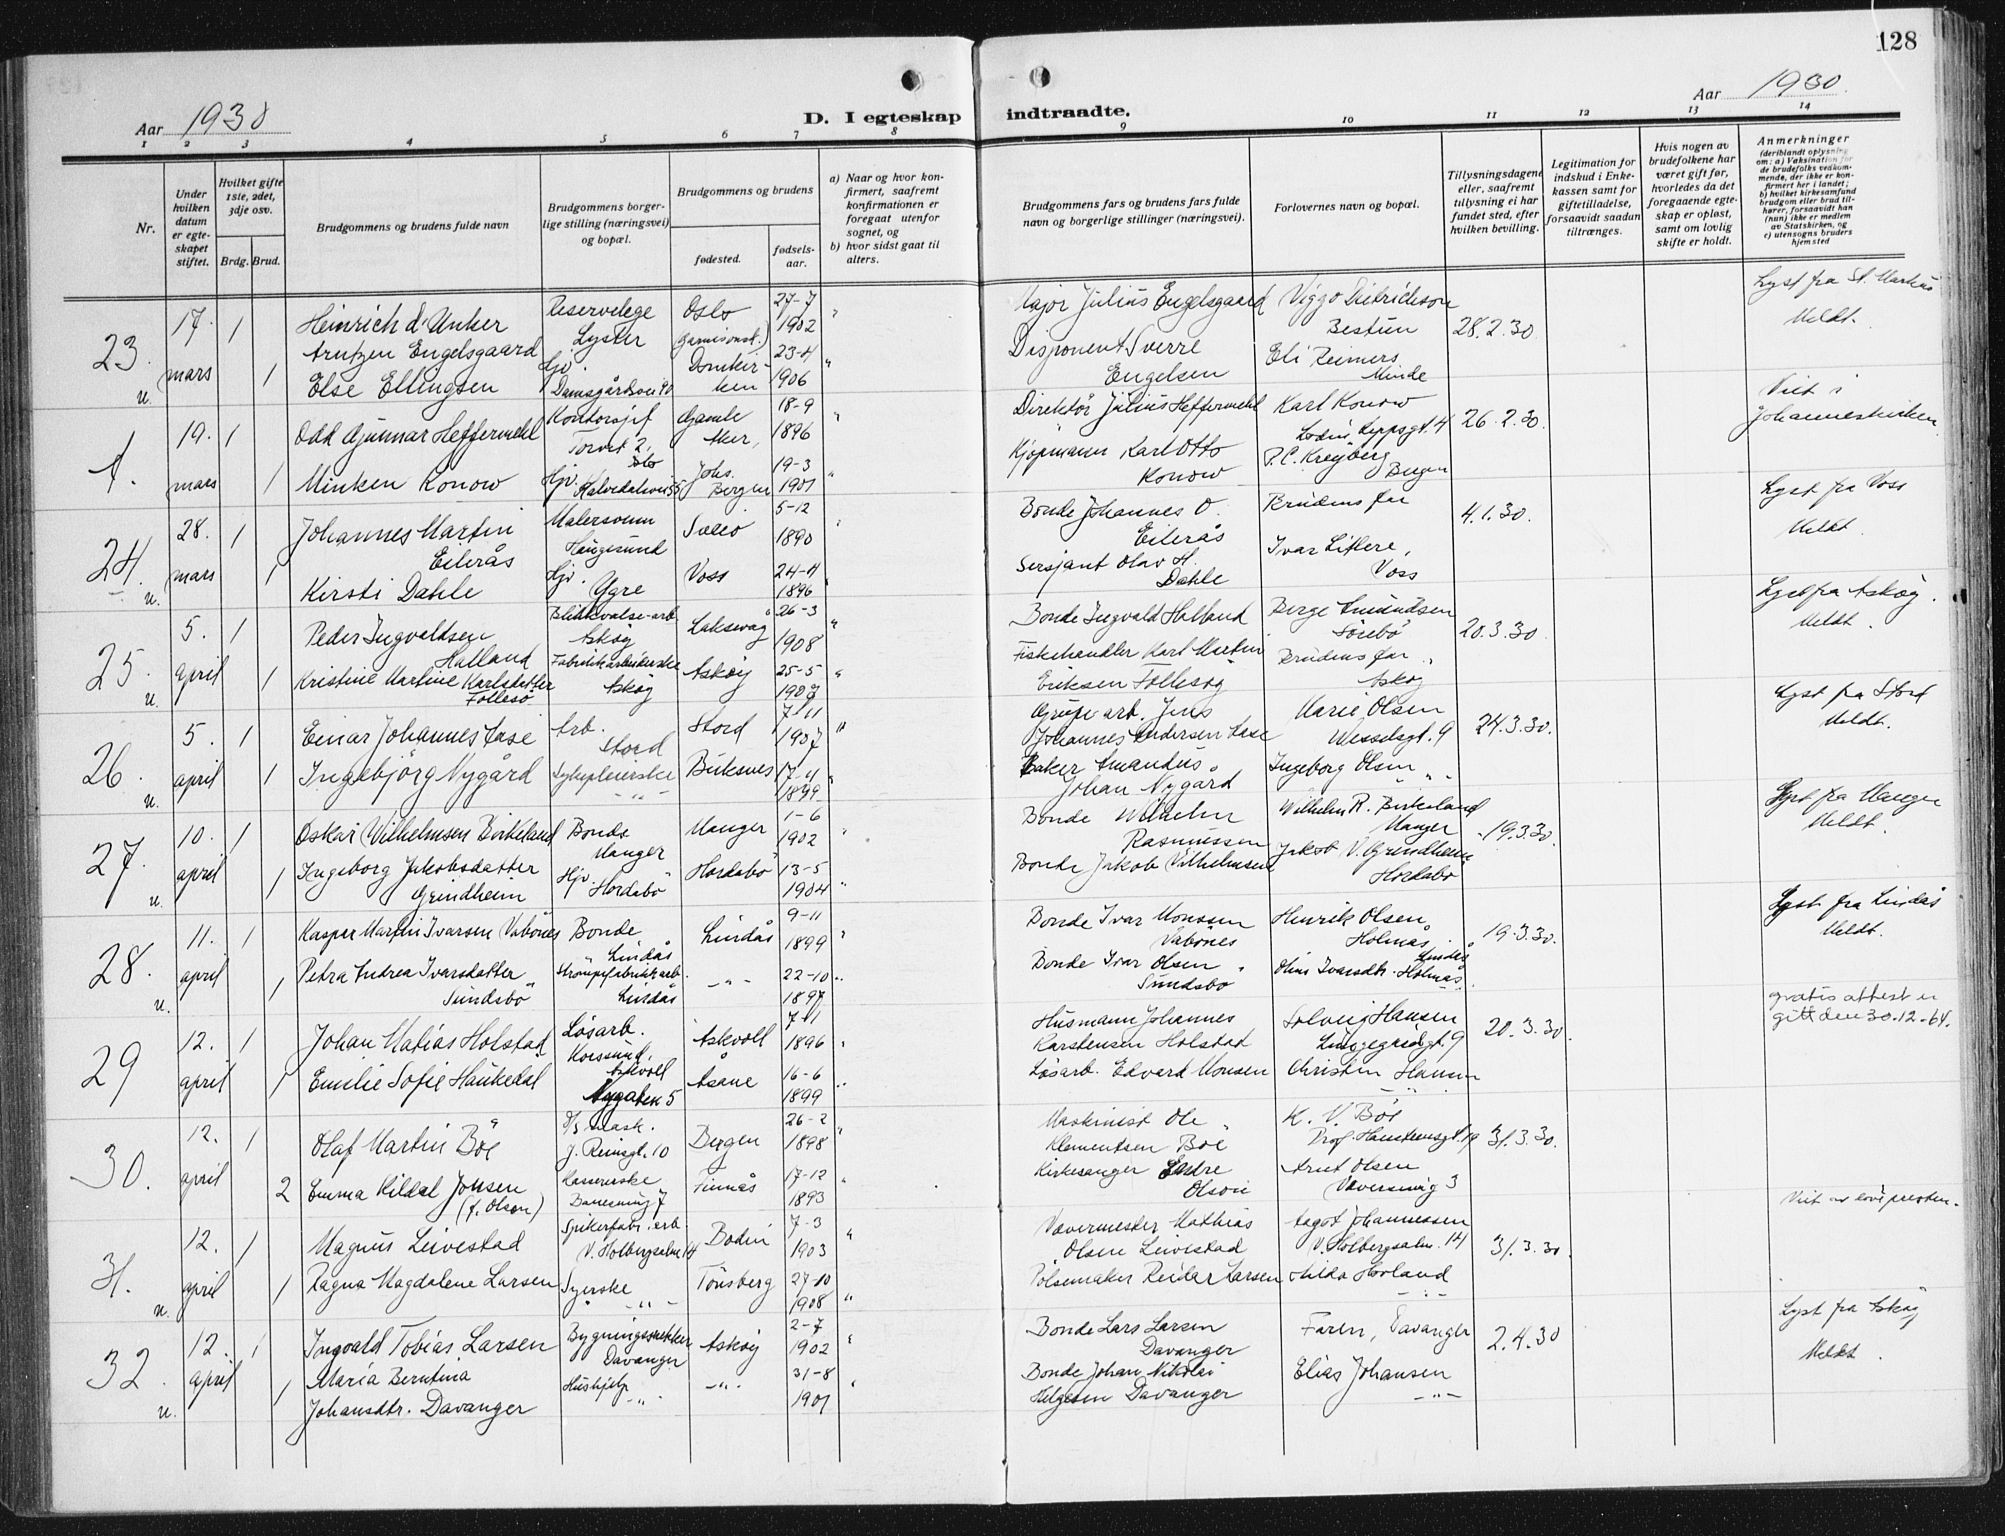 128
Aar 1930
D. I egteskap indtraadte.
Aar 1930
1 2 3 4 5 6 7 8 9 10 11 12 13 14
Nr.
Under hvilken datum er egte-skapet stiftet.
Hvilket gifte 1ste, 2det, 3dje osv.
Brdg. Brud.
Brudgommens og brudens fulde navn
Brudgommens borger-lige stilling (næringsvei) og bopæl.
Brudgommens og brudens
fødested.
fødsels-aar.
a) Naar og hvor kon-firmert, saafremt konfirmationen er foregaat utenfor sognet, og
b) hvor sidst gaat til alters.
Brudgommens fars og brudens fars fulde navn og borgerlige stillinger (næringsvei).
Forlovernes navn og bopæl.
Tillysningsdagene eller, saafremt tillysning ei har fundet sted, efter hvilken bevilling.
Legitimation for indskud i Enke-kassen samt for giftetilladelse, forsaavidt saadan tiltrænges.
Hvis nogen av brudefolkene har været gift før, hvorledes da det foregaaende egte-skap er opløst, samt om lovlig skifte er holdt.
Anmerkninger
(deriblandt oplysning om: a) Vaksination for de brudefolks vedkom-mende, der ikke er kon-firmert her i landet; b) hvilket kirkesamfund brudgom eller brud til-hører, forsaavidt han (hun) ikke er medlem av Statskirken, og c) utensogns bruders hjemsted
23. u. 17. mars 1 Heinrich d'Unker Arntzen Engelsgaard Reservelege Lyster Oslo (garnisonsm.) 27-7 1902 Major Julius Engelsgaard Viggo Dietrichson Bestun 28.2.30 Lyst fra St. Markus Meldt.
1 Else Ellingsen Hjv. Damsgårdsvei 90 Domkirken 23-4 1906 Disponent Sverre Engelsen Eli Reimers Minde
19. mars 1 Odd Gunnar Heffermehl Kontorsjef Torvet 2, Oslo Gamle Aker, 18-9 1896 Direktör Julius Heffermehl Karl Konow 26.2.30. Viet i Johanneskirken.
1 Minken Konow Hjv. Kalvedalsvei 55 Johs. Bergen 19-3 1901 Kjöpmann Karl Otto Konow P.C. Kreyberg Bergen
24. u. 28. mars 1 Johannes Martin Eilerås Malersvenn Haugesund 5-12 1890 Bonde Johannes O. Eilerås Brudens far 4.1.30. Lyst fra Voss Meldt.
1 Kirsti Dahle Hjv. Ygre Voss 24-4 1896 Sersjant Olav H. Dahle Ivar Liflere, Voss
25. u. 5. april 1 Peder Ingvaldsen Halland Blikkvalse-arb. Askøy Laksevåg 26-3 1908 Bonde Ingvald Halland Berge Amundsen Sörebö 20.3.30. Lyst fra Askøy. Meldt.
1 Kristine Martine Karlsdatter Follesö Fabrikkarbeiderske Askøy Askøy 25-5 1907 Fiskehandler Karl Martin Eriksen Follesøy Brudens far Askøy
26. u. 5. april 1 Einar Johannes Aase Arb. Stord Stord 7-11 1907 Grube arb. Jens Johannes Andersen Aase Marie Olsen Wesselsgt. 9 24.3.30. Lyst fra Stord Meldt.
1 Ingebjörg Nygård Sykepleierske Buksnes 17-4 1899 Baker Amandus Johan Nygård Ingeborg Olsen
27. u. 10. april 1 Oskar Vilhelmsen Birkeland Bonde Manger Manger 1-6 1902 Bonde Wilhelm Rasmussen Wilhelm R. Birkeland Manger 19.3.30. Lyst fra Manger Meldt.
1 Ingeborg Jakobsdatter Grindheim Hjv. Hordabö Hordabö 13-5 1904 Bonde Jakob Vilhelmsen Jakob V. Grindheim Hordabö
28. u. 11. april 1 Kaspar Martin Ivarsen Vabönes Bonde Lindås Lindås 9-11 1899 Bonde Ivar Monssen Vabönes Henrik Olsen Holmås, Lindås 19.3.30. Lyst fra Lindås Meldt.
1 Petra Andrea Ivarsdatter Sundsbö Strömpefabrikkarb. Lindås -"- 22-10 1897 Bonde Ivar Olsen Sundsbö Olina Ivarsdtr. Holmås
29 12. april 1 Johan Matias Holstad Lösarb. Korssund, Askvoll Askvoll 7-1 1896 Husmann Johannes Karstensen Holstad Solveig Hansen 20.3.30. gratis attest er gitt den 30.12-64.
1 Emilie Sofie Haukedal Nygaten 5 Åsane 16-6 1899 Lösarb. Edvard Monsen Christin Hansen
30. 12. april 1 Olaf Martin Böe D/s mask. J. Reinsgt. 10 Bergen 26-2 1898 Maskinist Ole Klementsen Böe K. V. Böe Prof. Hansteensgt. 19 31.3.30.
2 Emma Kildal Jonsen (f. Olsen) 7 Finnås 17-12 1893 Kirkesanger Endre Olson Arnt Olsen 3 Viet av prosten.
31. u. 12. april 1 Magnus Leivestad Spikerfabr. arb. V. Holbergsalm. 14 Bodin 7-3 1903 Vævermester Mathias Olsen Leivestad Aagot Johannessen V. Holbergsalm. 14 31.3.30.
1 Ragna Magdalene Larsen Syerske -"- Tönsberg 27-10 1908 Pölsemaker Reidar Larsen Hilda Hovland -"-
32 u. 12. april 1 Ingvald Tobias Larsen Bygningssnekker Davanger Askøy 2-7 1902 Bonde Lars Larsen Davanger Faren, Davanger 2.4.30 Lyst fra Askøy Meldt.
1 Maria Berntina Johansdtr. Davanger Hushjelp -"- 31-8 1901 Bonde Johan Nikolai Helgesen Davanger Elias Johansen -"-